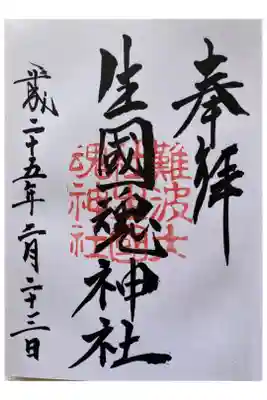 奉拝
生國魂神社
難波大社生國魂神社
平成二十五年二月二十三日